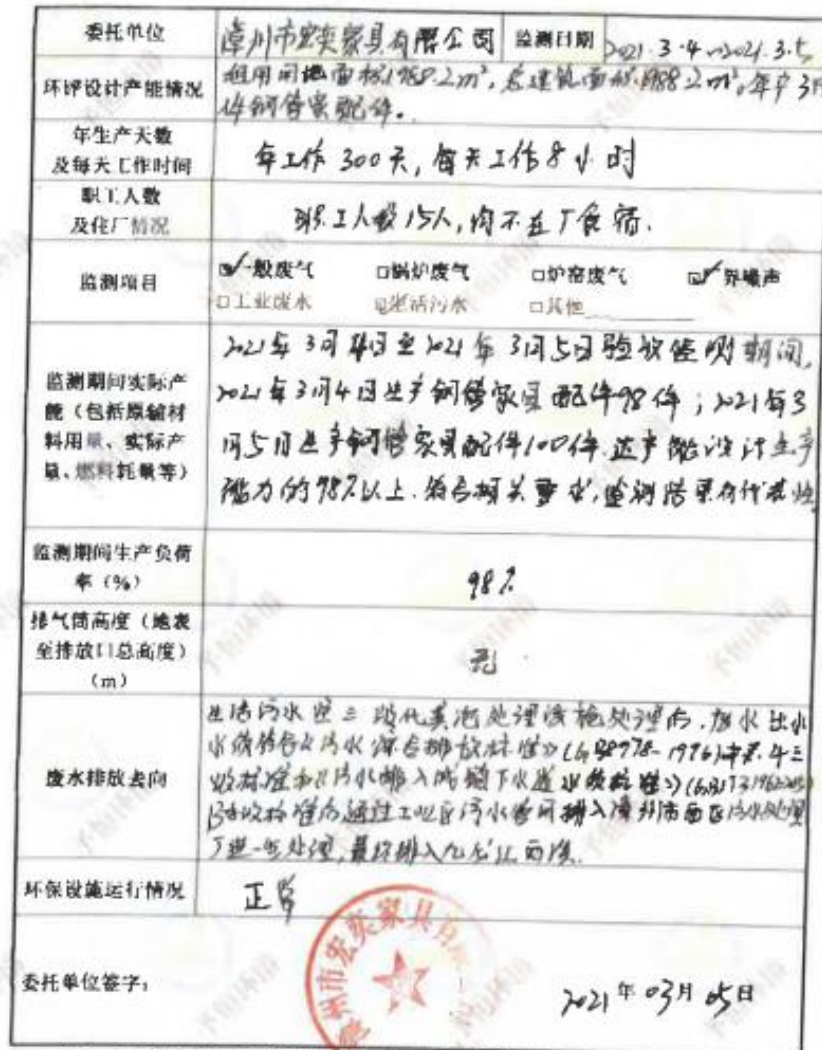 委托单位 漳州市宏奕家具有限公司 监测日期 2021.3.4~2021.3.5
环评设计产能情况 租用用地面积1988.2m²，总建筑面积1988.2m²，年产3万
件钢管家配件。
年生产天数
及每天工作时间 年工作300天，每天工作8小时
职工人数
及住厂情况 职工人数15人，均不在厂食宿.
监测项目 ☑一般废气 □锅炉废气 □炉窑废气 ☑厂界噪声
□工业废水 生活污水 □其他
监测期间实际产
能（包括原辅材
料用量、实际产
量、燃料耗量等）
2021年3月4日至2021年3月5日验收监测期间，
2021年3月4日生产钢管家具配件98件；2021年3
月5日生产钢管家具配件100件.达产能设计生产
能力的98%以上.符合相关要求，监测结果有代表性
监测期间生产负荷
率（%） 98%
排气筒高度（地表
至排放口总高度）
（m） 无
废水排放去向
生活污水经三级化粪池处理设施处理后，废水出水
水质符合《污水综合排放标准》（GB8978-1996）中表4三
级标准和《污水排入城镇下水道水质标准》（GB/T31962
B级标准后通过工业区污水管网排入漳州市西区污水处理
厂进一步处理，最终排入九龙江西溪.
环保设施运行情况 正常
委托单位签字：
漳州市宏奕家具有
2021年03月05日